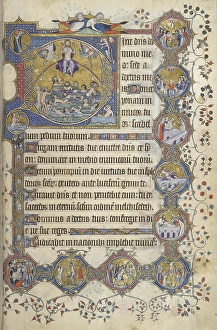 ixit dns do
mino me
o: sede a
dextris meis
Donec po
nam inimi
cos tuos
scabel
lum pedum tuorum.
Virgam virtutis tue emittet dns ex sy
on: dominare in medio inimicorum tuorum
Tecum principium in die virtutis tue in
sanctorum: ex utero ante luciferum genui te
Iuravit dns et non penitebit eum: tu es
sacerdos in eternum secundum ordinem
Dominus a dextris tuis: confregit in di
e ire sue reges.
Iudicabit in nationibus implebit ruinas: